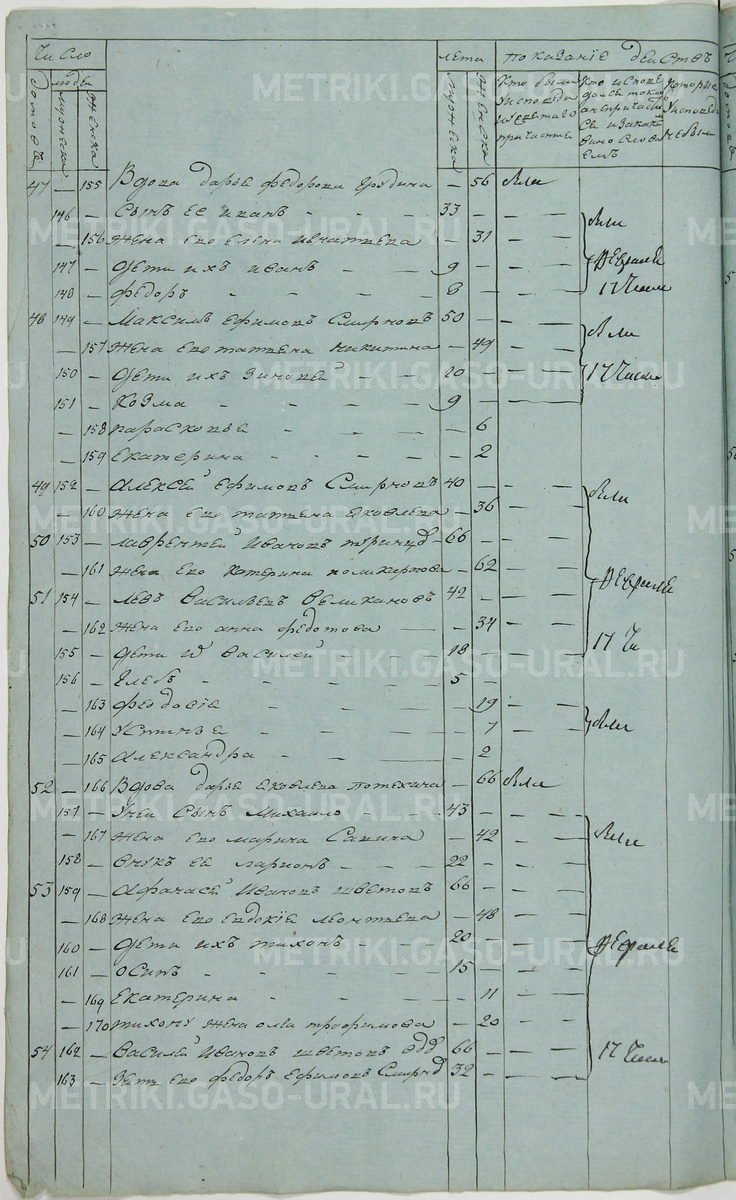 Число лета показание действъ
домовъ людей мужеска женска мужеска женска
Кто были у исповеди и святаго причастия
Кто исповедался токмо а не причастился и за каким винословием
Которые у исповеди не были
47 — 155 Вдова дарье федорова — 56 Были
146 — сынъ ее иванъ - - - 33 — — — Были
— 156 жена его елена игнатьева — 31 — —
147 — дети ихъ иванъ — — 9 — — — Февраля
148 — федоръ - - - 8 — — — 17 Числа
48 149 — Максимъ ефимовъ Смирновъ 50 — — — Были
— 157 жена его татьяна никитина — 49 — —
150 — дети ихъ Зиновей — — 20 — — — 17 Числа
151 — Козма - - - 9 — — —
— 158 парасковье — — — — 6
— 159 екатерина - - - — 2
49 152 — алексей ефимовъ Смирновъ 40 — — — Были
— 160 жена его татьяна яковлева — 36 — —
50 153 — лаврентей ивановъ — 66 — — —
— 161 жена его катерина поликарпова — 62 — — Февраля
51 154 — левъ васильевъ великановъ 42 — — —
— 162 жена его анна федотова — 34 — —
155 — дети и василей — — 18 — — — 17 Чи
156 — глебъ - - - 5 —
— 163 федосия - - - — 19 — —
— 164 устинья - - — 7 — — Были
— 165 александра - - — 2 — —
52 — 166 Вдова дарье яковлева потехина — 66 Были
157 — у ней сынъ михаило — — 43 — — —
— 167 жена его марина Савина — 42 — — Были
158 — внукъ ее ларионъ - — 22 — — —
53 159 — афанасей ивановъ цветовъ 66 — — —
— 168 жена его евдокия леонтьева — 48 — —
160 — дети ихъ тихонъ - 20 — — — Февраля
161 — осипъ - - - 15 — — —
— 169 екатерина - - — 11 — —
— 170 тихону жена трофимова — 20 — —
54 162 — василей ивановъ цветовъ вдд 66 — — — 17 Числ
163 — зять его федоръ ефимовъ Смирнд 32 — — —
METRIKI.GASO-URAL.RU